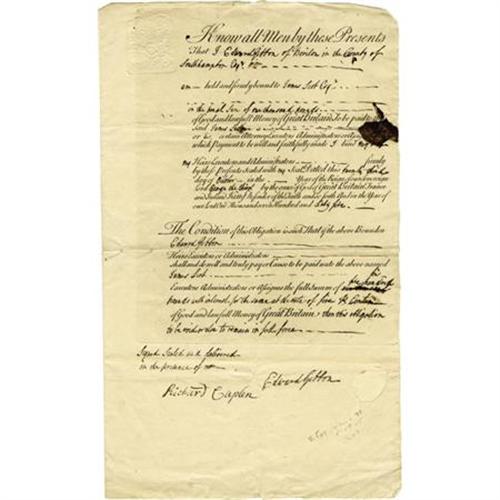 Know all Men by these Presents
That I Edward Gibbon of Beriton in the County of
Southampton Esq.
am held and firmly bound to James Scott Esq.
in the penal Sum of one thousand pounds
of Good and lawfull Money of Great Britain to be paid to the
said James
or his certain Attorney Executors Administrators or Assigns
which Payment to be well and faithfully made I bind myself
my Heirs Executors and Administrators firmly
by these Presents Sealed with my Seal Dated this twenty third
day of in the Year of the Reign of our Sovereign
Lord George the third by the Grace of God of Great Britain France
and Ireland King Defender of the Faith and so forth And in the Year of
our Lord One Thousand seven Hundred and Sixty five
The Condition of this Obligation is such That if the above Bounden
Edward Gibbon
Heirs Executors or Administrators
shall and do well and truly pay or Cause to be paid unto the above named
James Scott his
Executors Administrators or Assigns the full Summ of five hundred
pounds with interest for the same at the rate of five
of Good and lawfull Money of Great Britain then this obligation
to be void or else to remain in full force
Signed Sealed and delivered
in the presence of
Edward Gibbon
Richard Caplen